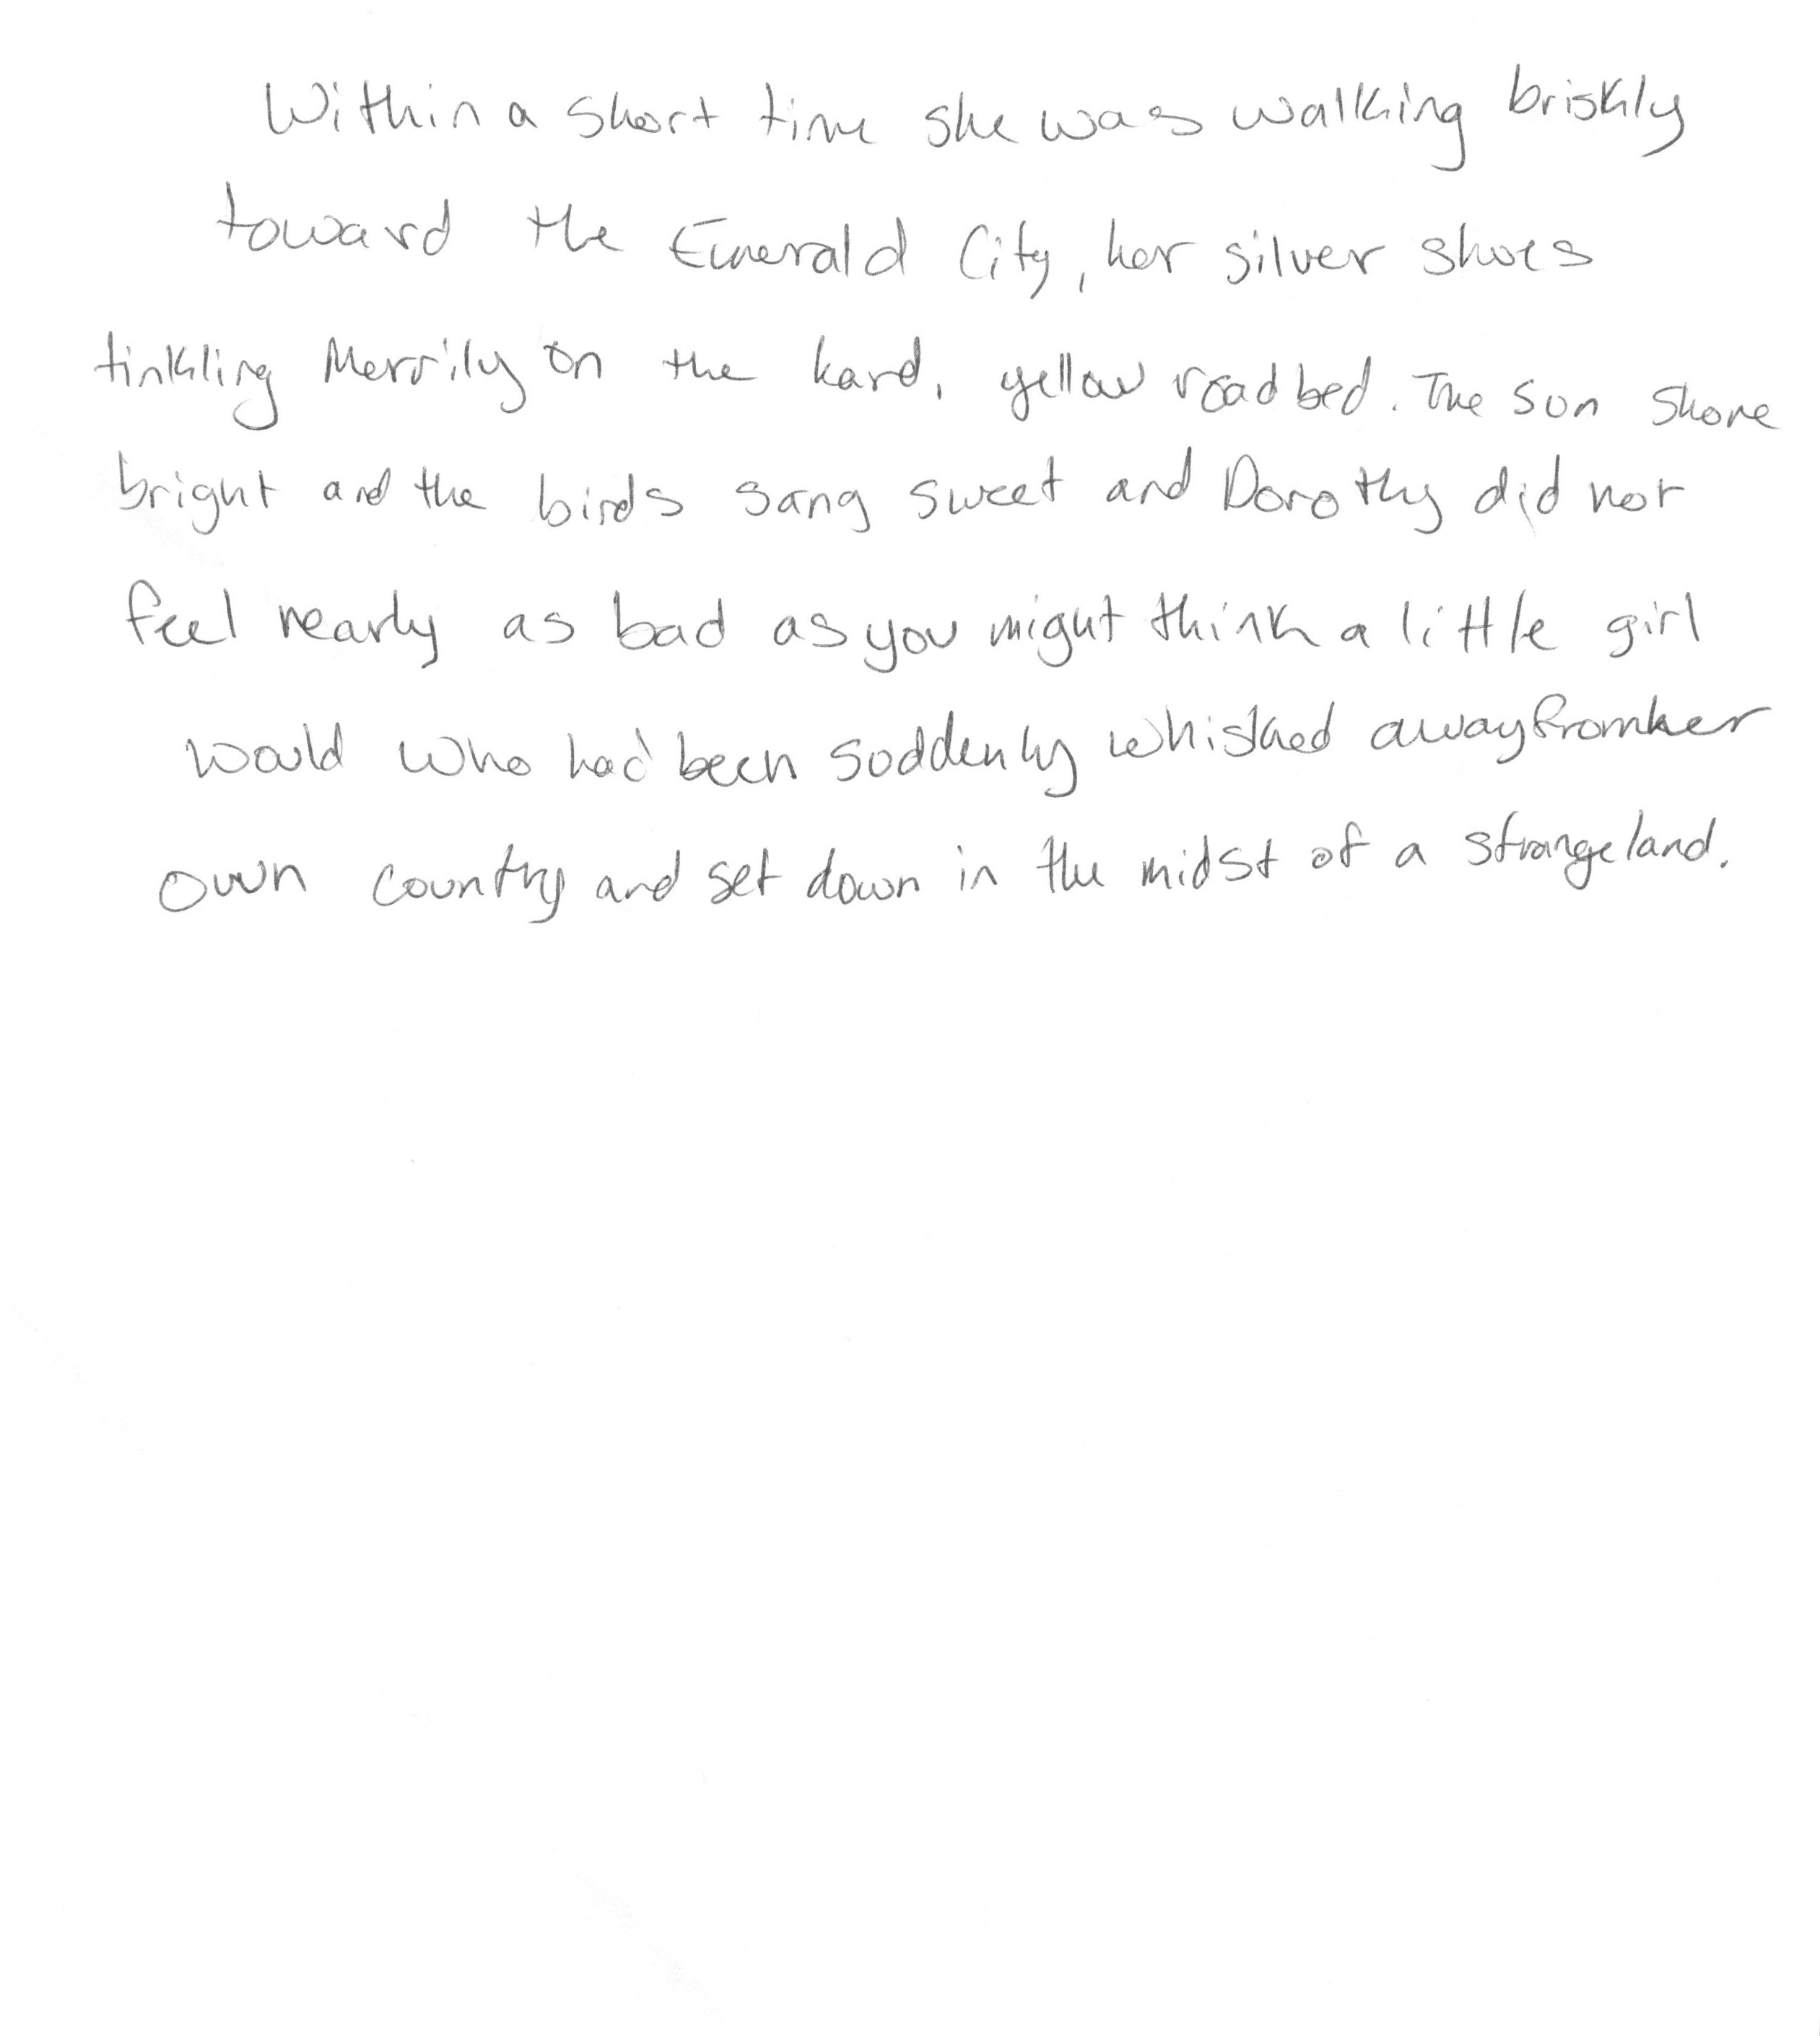 Within a short time she was walking briskly
toward the Emerald City, her silver shoes
tinkling Merrily on the hard, yellow roadbed. The sun shone
bright and the birds sang sweet and Dorothy did not
feel nearly as bad as you might think a little girl
would who had been suddenly whisked away from her
own country and set down in the midst of a strange land.